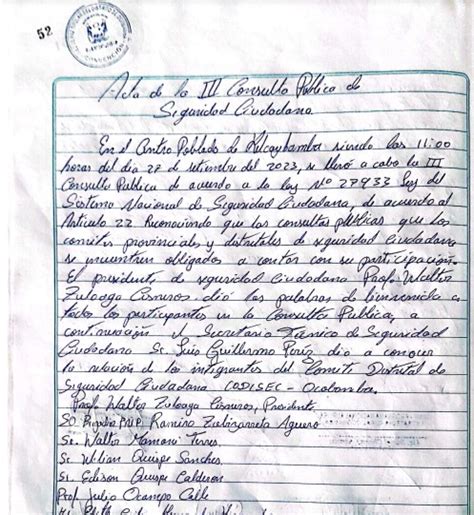 52
Acta de la III Consulta Pública de
Seguridad Ciudadana.
En el Centro Poblado de Kelcaybamba siendo las 11:00
horas del día 27 de setiembre del 2023, se llevó a cabo la III
Consulta Publica de acuerdo a la ley Nº 27933 ley del
Sistema Nacional de Seguridad Ciudadana, de acuerdo al
Artículo 22 Reconociendo que las consultas públicas que los
comites provinciales y distritales de seguridad ciudadana
se encuentran obligados a contar con su participación.
El presidente de seguridad ciudadana Profe. Walter
Zuloaga Cisneros dió las palabras de bienvenida a
todos los participantes en la Consulta Publica, a
continuación el Secretario Técnico de Seguridad
Ciudadana Sr. Luis Guillermo Periz dio a conocer
la relación de los integrantes del Comité Distrital de
Seguridad Ciudadana CODISEC - Ocobamba.
Profe. Walter Zuloaga Cisneros, Presidente.
SO Brigadier PNP. Ramiro Zubizarreta Aguero
Sr. Walter Mamani Torres
Sr. Wilian Quispe Sanches
Sr. Edison Quispe Calderon
Prof Julio Ocampo Calle